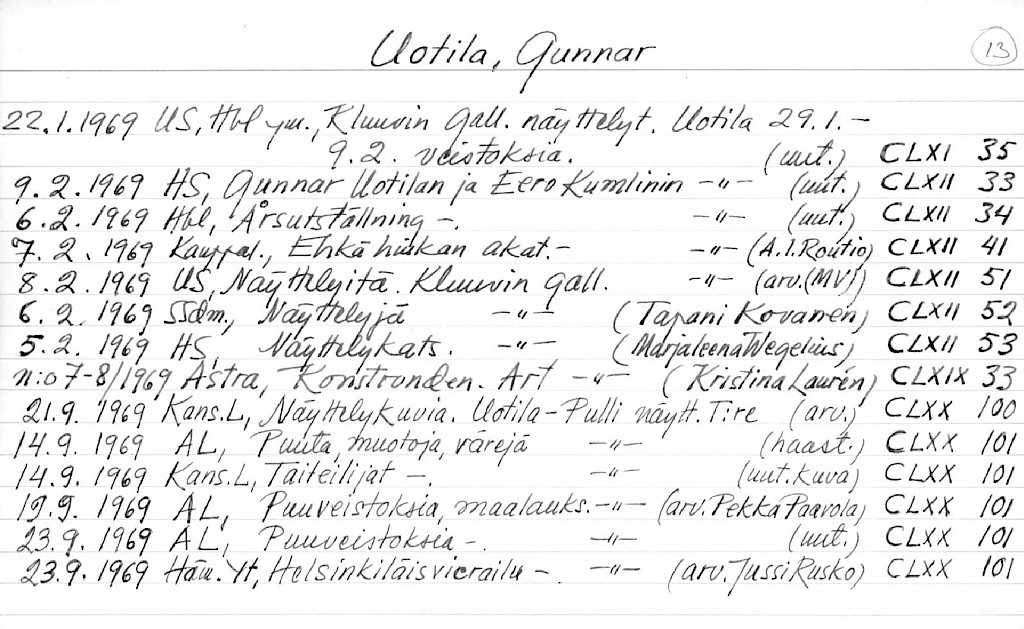 Uotila, Gunnar 13
22.1.1969 US, Hbl ym., Kluuvin Gall. näyttelyt. Uotila 29.1. –
9.2. veistoksia. (uut.) CLXI 35
9.2.1969 HS, Gunnar Uotilan ja Eero Kumlinin –"– (uut.) CLXII 33
6.2.1969 Hbl, Årsutställning –. –"– (uut.) CLXII 34
7.2.1969 Kauppal., Ehkä hiukan akat. – –"– (A.I.Routio) CLXII 41
8.2.1969 US, Näyttelyitä. Kluuvin gall. –"– (arv.(MV)) CLXII 51
6.2.1969 SSdm., Näyttelyjä –"– (Tapani Kovanen) CLXII 52
5.2.1969 HS, Näyttelykats. –"– (Marjaleena Wegelius) CLXII 53
n:o 7-8/1969 Astra, Konstronden. Art –"– (Kristina Laurén) CLXIX 33
21.9.1969 Kans.L, Näyttelykuvia. Uotila-Pulli näytt. T:re (arv.) CLXX 100
14.9.1969 AL, Puuta, muotoja, värejä –"– (haast.) CLXX 101
14.9.1969 Kans.L, Taiteilijat –. –"– (uut.kuva) CLXX 101
19.9.1969 AL, Puuveistoksia, maalauks. –"– (arv. Pekka Paavola) CLXX 101
23.9.1969 AL, Puuveistoksia –. –"– (uut.) CLXX 101
23.9.1969 Häm.Yt, Helsinkiläisvierailu –. –"– (arv. Jussi Rusko) CLXX 101